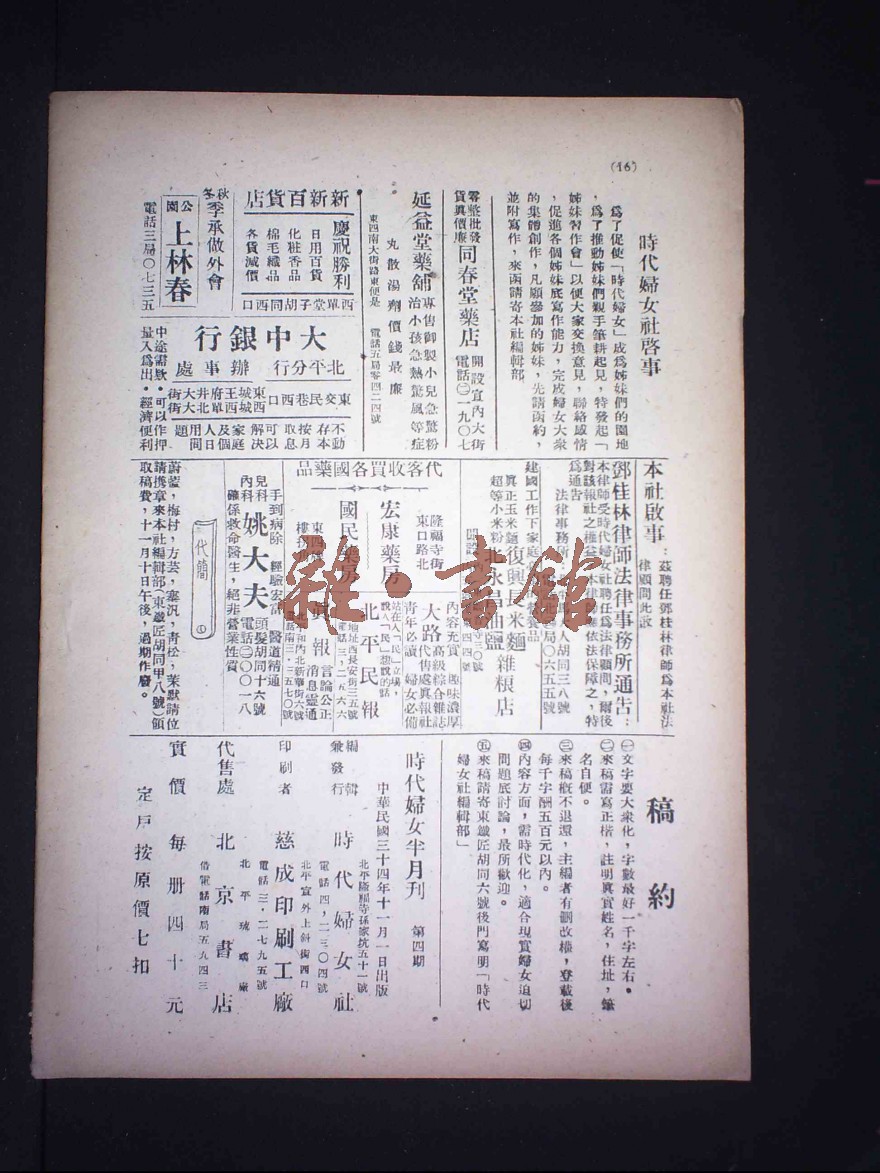 (16)
時代婦女社啓事
爲了促使「時代婦女」成爲姊妹們的園地
，爲了推動姊妹們親手筆耕起見，特發起「
姊妹習作會」以便大家交換意見，聯絡感情
，促進各個姊妹底寫作能力，完成婦女大衆
的集體創作，凡願參加的姊妹，先請函約，
並附寫作，來函請寄本社編輯部。
零整批發
貨眞價廉
同春堂藥店
開設宣內大街
電話㊁一九〇七
延益堂藥舖
專售御製小兒急驚粉
治小孩急熱驚風等症
丸散湯劑價錢最廉
東四南大街路東便是
電話五局零四二四號
新新百貨店
慶祝勝利
日用百貨
化粧香品
棉毛織品
各貨減價
西單堂子胡同西口
秋冬
季承做外會
公園
上林春
電話三局〇七三五
大中銀行
北平分行
辦事處
東交民巷西口
東城王府井大街
西城西單北大街
不動存本按月取息可以解決家庭及個人日用問題
中途需欵，可以作押
量入爲出，經濟便利
本社啟事：
茲聘任鄧桂林律師爲本社法
律顧問此啟
鄧桂林律師法律事務所通告：
本律師受時代婦女社聘任爲法律顧問，爾後
對該報社之權益本律師當依法保障之，特
爲通告
法律事務所
人胡同三八號
局〇六五五號
建國工作下家庭
品
眞正玉米麵
超等小米粉
復興長米麵
北永昌油鹽
雜粮店
代客收買各國藥品
隆福寺街
東口路北
宏康藥房
國民藥房
東四
樓
內容充實
趣味濃厚
大路
高級綜合雜誌
代售處興報社
青年必讀
婦女必備
站在人「民」立場，
說人「民」想說的話
北平民報
地址西長安街三五號
電話三・二五六六
眞報
言論公正
消息靈通
北平和內北新華街六號
電話南三・三五七〇號
手到病除
經驗宏富
醫道精通
兒科
內科
姚大夫
頭髮胡同十六號
電話二〇〇一八
確係救命醫生，絕非營業性質
代簡
①
蔚藍，梅村，方芸，塞汎，靑松，茉默請位
請携章來本社編輯部（東鐵匠胡同甲八號）領
取稿費，十一月十日午後，過期作廢。
稿約
㊀文字要大衆化，字數最好一千字左右。
㊁來稿需寫正楷，註明眞實姓名，住址，筆
名自便。
㊂來稿槪不退還，主編者有刪改權，登載後
每千字酬五百元以內。
㊃內容方面，需時代化，適合現實婦女迫切
問題底討論，最所歡迎。
㊄來稿請寄東鐵匠胡同六號後門寫明「時代
婦女社編輯部」
時代婦女半月刊
第四期
中華民國三十四年十一月一日出版
編輯
兼發行
時代婦女社
北平隆福寺孫家坑五十一號
電話四，二三〇四號
印刷者
慈成印刷工廠
北平宣外上斜街四口
電話三・二七九五號
代售處
北京書店
北平琉璃廠
借電話南局五九四三
實價每册四十元
定戶按原價七扣
雜·書館